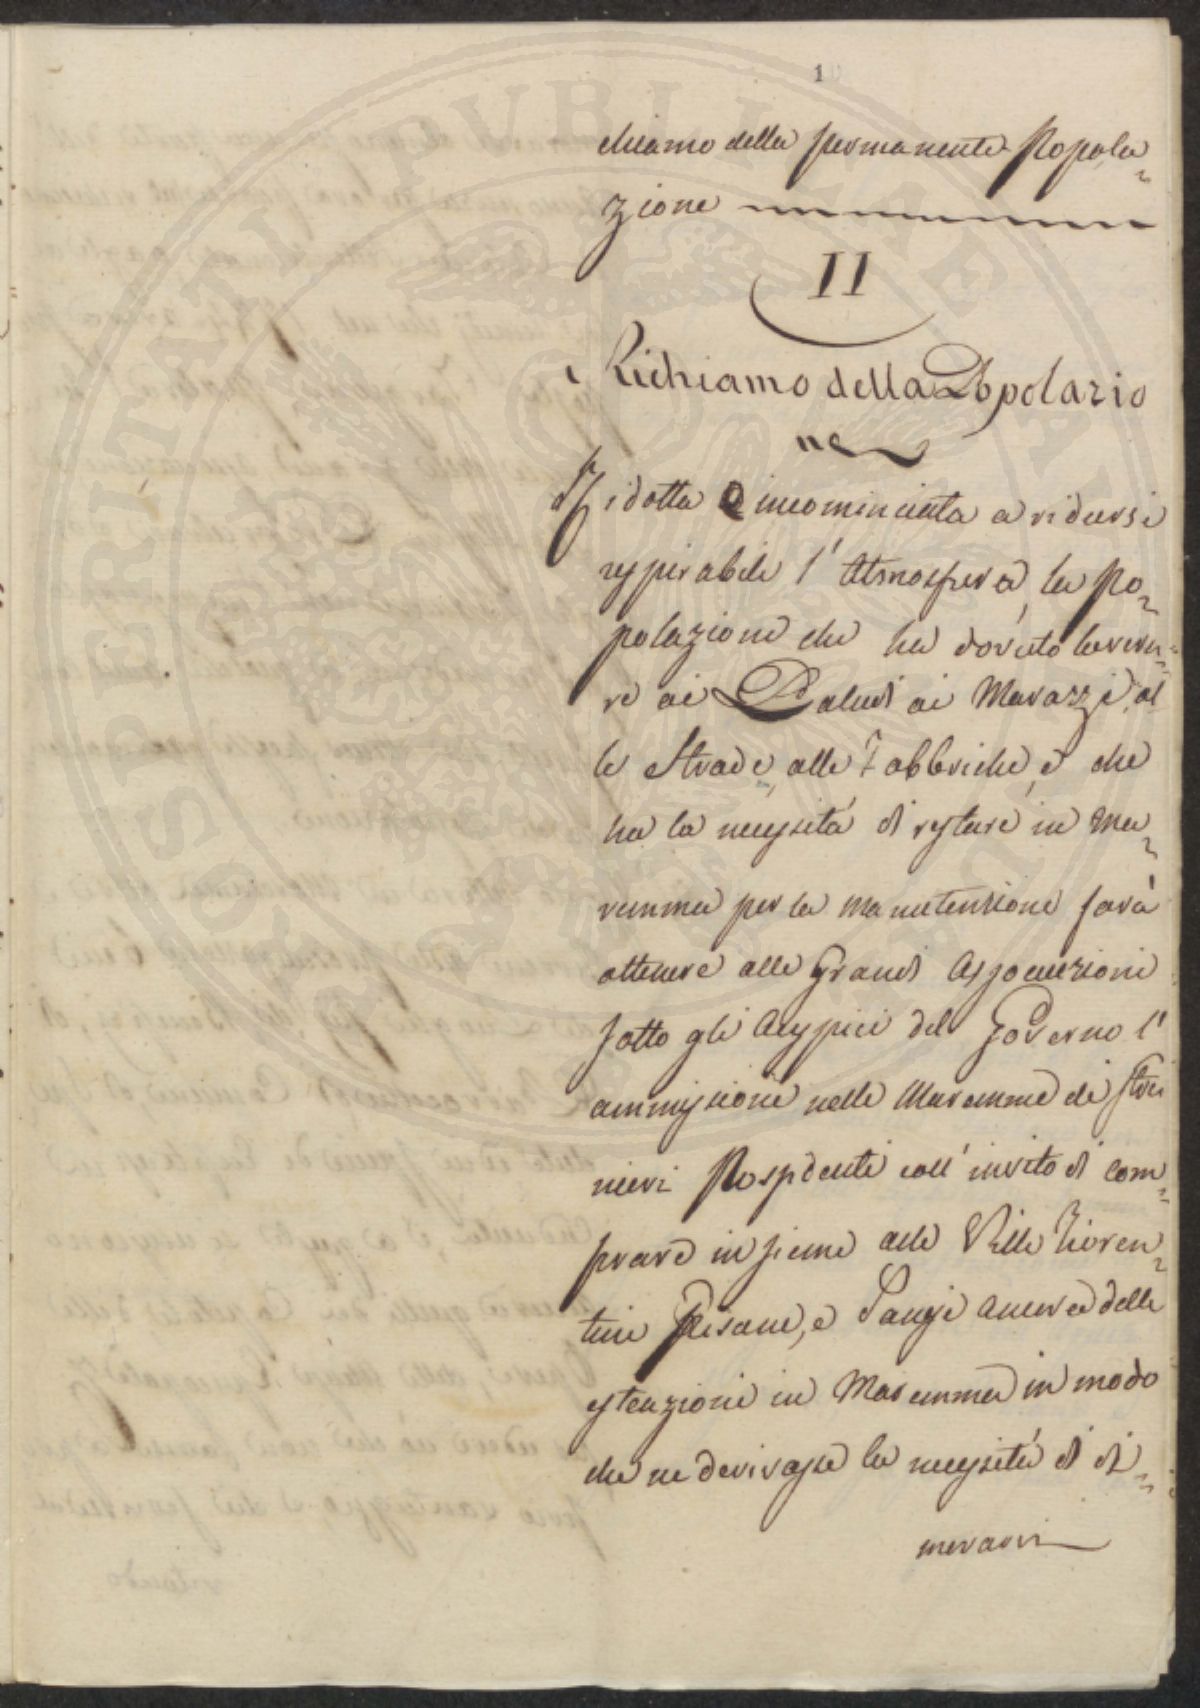 10
chiamo della permanente Popola=
zione
II
Richiamo della Popolazio
ne
Ridotta o incominciata a ridursi
respirabile l'Atmosfera, la Po=
polazione che ha dovuto lavora=
re ai Paludi ai Marazzi, al
le Strade, alle Fabbriche, e che
ha la necessità di restare in Ma=
remma per la manutenzione farà
ottenere alle Grandi Associazioni
sotto gli Auspici del Governo l'
ammissione nelle Maremme di Stra
nieri Possidenti coll'invito di com=
prare insieme alle Ville Fioren=
tine Pisane, e Sanesi ancora delle
estenzioni in Maremma in modo
che ne derivasse la necessità di di=
morarvi